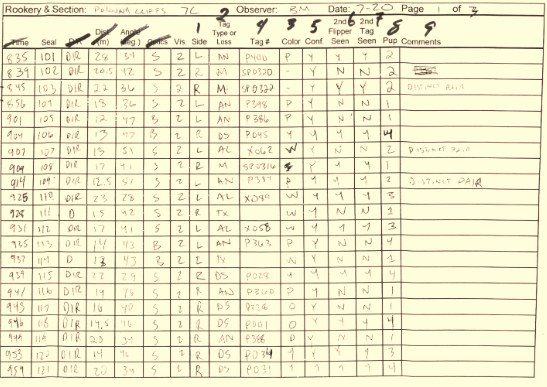 Rookery & Section: POLOVINA CLIFFS 7C Observer: BM Date: 7-20 Page 1 of 3
1 2 4 3 5 6 7 8 9
Time Seal Dir Dist (m) Angle (deg.) Optics Vis Side Tag Type or Loss Tag # Color Conf. 2nd Flipper Seen 2nd Tag Seen Pup Comments
835 101 DIR 28 34 S 2 L AN P400 P Y Y Y 2
839 102 DIR 20.5 42 S 2 R M SP0320 - Y N N 2
845 103 DIR 22 36 S 2 R M SP0322 - Y Y Y 2 DISTINCT PAIR
856 104 DIR 18 36 S 2 L AN P398 P Y N N 1
901 105 DIR 12 47 B 2 L AN P386 P Y N N 1
904 106 DIR 13 47 B 2 R DS P045 Y Y Y Y 4
907 107 DIR 13 51 S 2 L AL X062 W Y N N 2 DISTINCT PAIR
909 108 DIR 17 41 S 2 R M SP0316 Y Y Y 1
914 109 DIR 12.5 51 S 2 L AN P387 P Y Y Y 2 DISTINCT PAIR
925 110 DIR 23 28 S 2 L AL W Y Y Y 3
928 111 D 15 42 S 2 R TX W Y N N 1
931 112 DIR 17 41 S 2 L AL X058 W Y Y Y 3
935 113 DIR 14 43 B 2 L AN P363 P Y N N 4
937 114 D 13 43 B 2 TX W Y N N 1
939 115 DIR 22 29 S 2 R DS P028 Y Y Y Y 4
941 116 DIR 19 S 2 R AN P360 P Y N N 1
943 117 DIR 16 40 S 2 R DS O Y N N 1
946 118 DIR 14.5 46 S 2 R DS P001 O Y Y Y 4
949 119 DIR 20 34 S 2 R AN P388 P Y N N 1
953 120 DIR 14 46 S 2 R DS P034 Y Y Y Y 3
959 121 DIR 20 34 S 2 R DS P031 Y Y Y Y 4